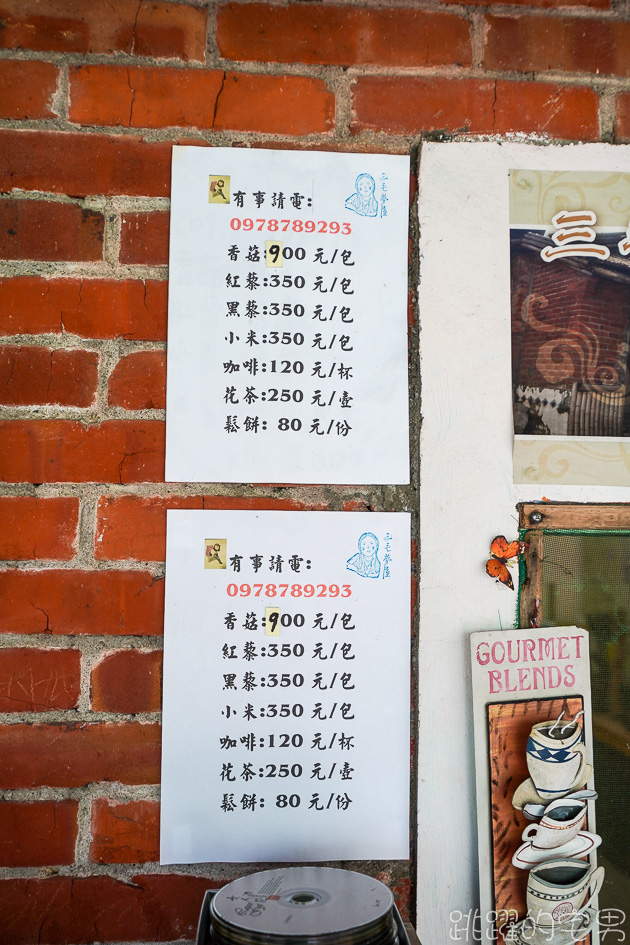 有事請電:
三毛夢屋
0978789293
香菇:900 元/包
紅藜:350 元/包
黑藜:350 元/包
小米:350 元/包
咖啡:120 元/杯
花茶:250 元/壺
鬆餅: 80 元/份
有事請電:
三毛夢屋
0978789293
香菇:900 元/包
紅藜:350 元/包
黑藜:350 元/包
小米:350 元/包
咖啡:120 元/杯
花茶:250 元/壺
鬆餅: 80 元/份
三
GOURMET
BLENDS
跳躍的宅男